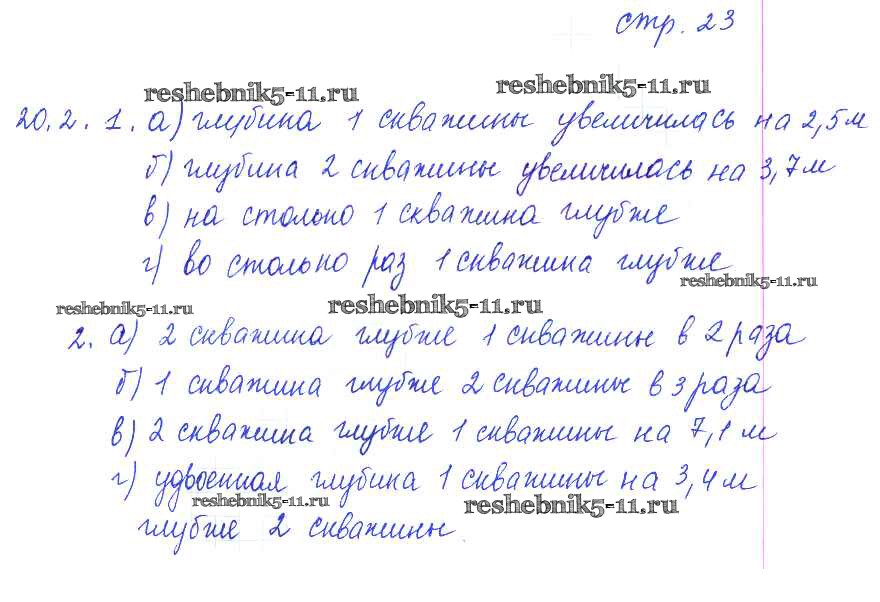 стр. 23
reshebnik5-11.ru
reshebnik5-11.ru
20.2.1. а) глубина 1 скважины увеличилась на 2,5 м
б) глубина 2 скважины увеличилась на 3,7 м
в) на столько 1 скважина глубже
г) во столько раз 1 скважина глубже
reshebnik5-11.ru
reshebnik5-11.ru
reshebnik5-11.ru
2. а) 2 скважина глубже 1 скважины в 2 раза
б) 1 скважина глубже 2 скважины в 3 раза
в) 2 скважина глубже 1 скважины на 7,1 м
г) удвоенная глубина 1 скважины на 3,4 м
reshebnik5-11.ru
reshebnik5-11.ru
глубже 2 скважины